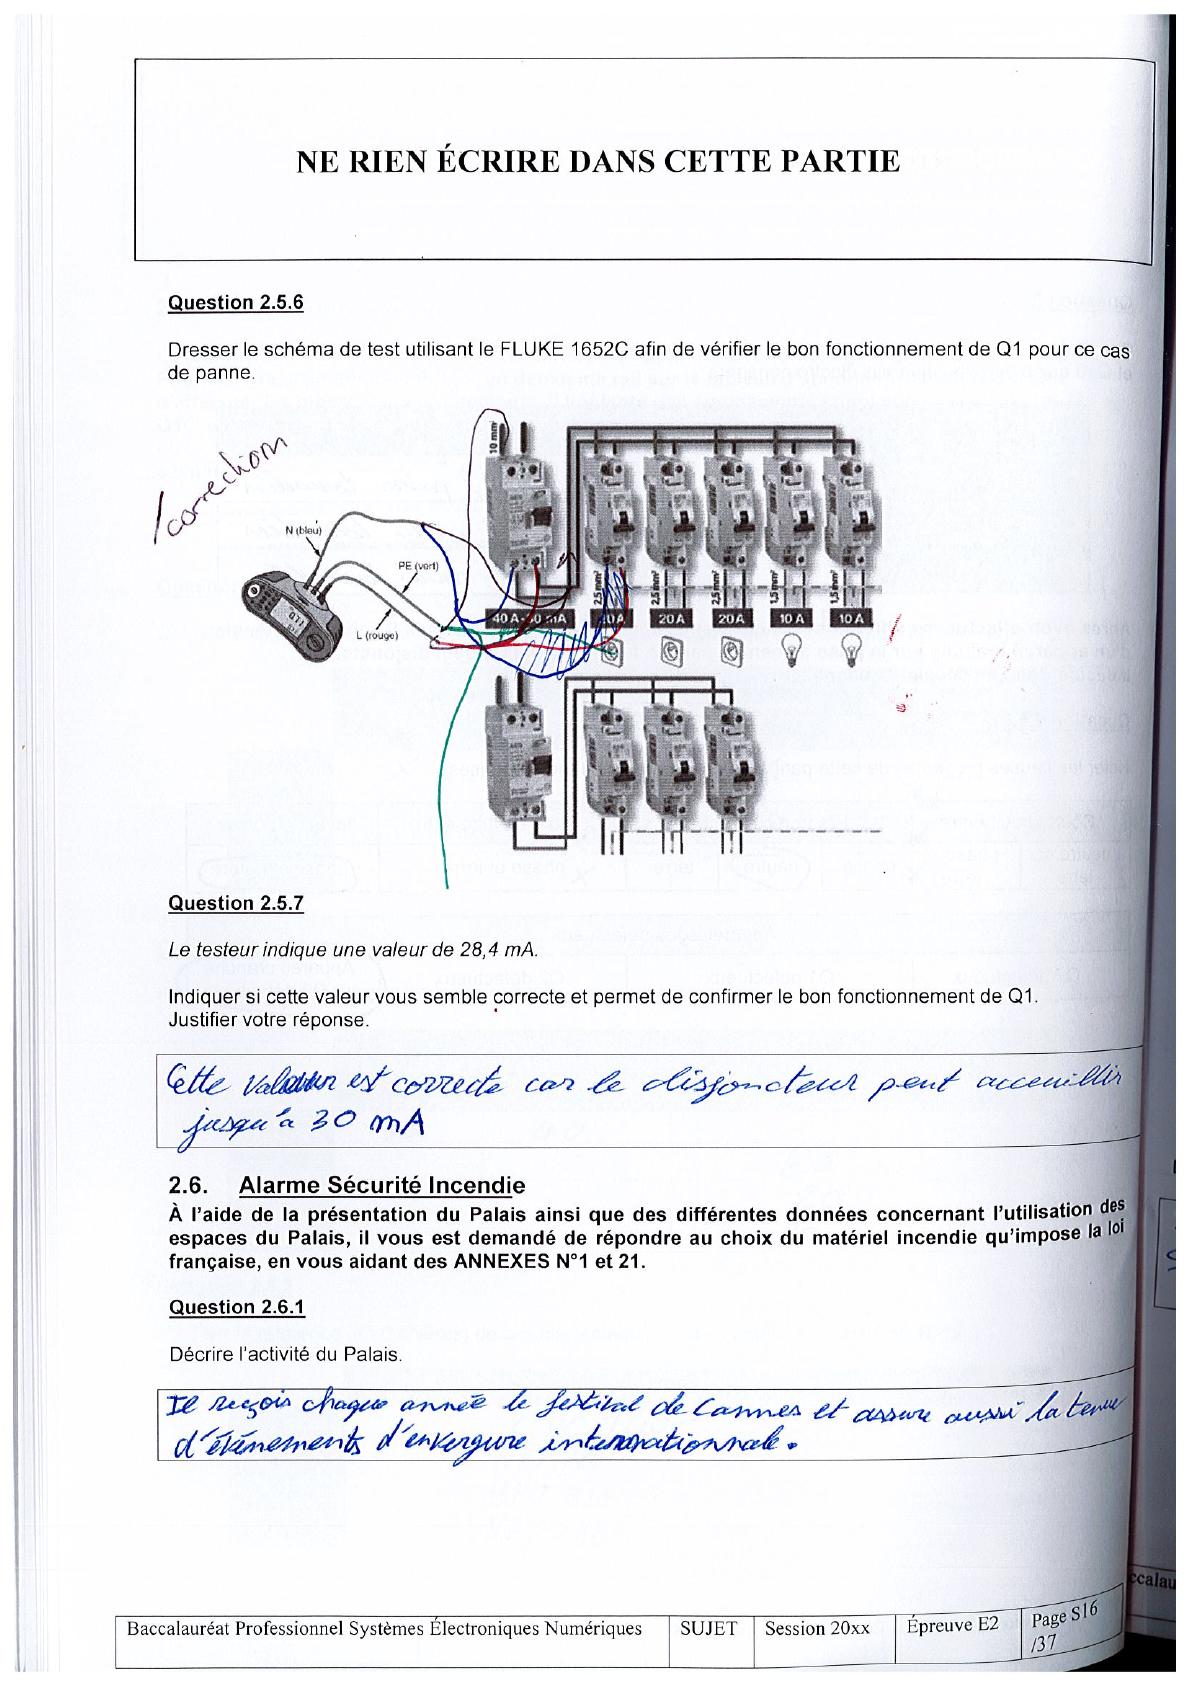 NE RIEN ÉCRIRE DANS CETTE PARTIE
Question 2.5.6
Dresser le schéma de test utilisant le FLUKE 1652C afin de vérifier le bon fonctionnement de Q1 pour ce cas
de panne.
/correction
10 mm²
N (bleu)
PE (vert)
L (rouge)
2,5 mm²
2,5 mm²
2,5 mm²
1,5 mm²
1,5 mm²
40 A
mA
20 A
20 A
10 A
10 A
Question 2.5.7
Le testeur indique une valeur de 28,4 mA.
Indiquer si cette valeur vous semble correcte et permet de confirmer le bon fonctionnement de Q1.
Justifier votre réponse.
Cette valeur est correcte car le disjoncteur peut acceuillir
jusqu'à 30 mA
2.6. Alarme Sécurité Incendie
À l'aide de la présentation du Palais ainsi que des différentes données concernant l'utilisation des
espaces du Palais, il vous est demandé de répondre au choix du matériel incendie qu'impose la loi
française, en vous aidant des ANNEXES N°1 et 21.
Question 2.6.1
Décrire l'activité du Palais.
Il reçois chaque année le festival de Cannes et assure aussi la tenue
d'événements d'envergure internationale.
Baccalauréat Professionnel Systèmes Électroniques Numériques SUJET Session 20xx Épreuve E2 Page S16
/37
ccalau